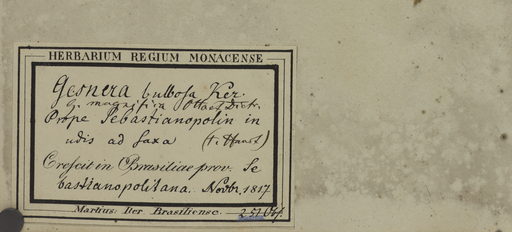 HERBARIUM REGIUM MONACENSE
Gesnera bulbosa Ker.
G. magnifica Otto et Dietr.
Prope Sebastianopolin in
udis ad saxa
Crescit in Brasiliae prov. Se
bastianopolitana. Novbr. 1817
Martius. Iter Brasiliense.